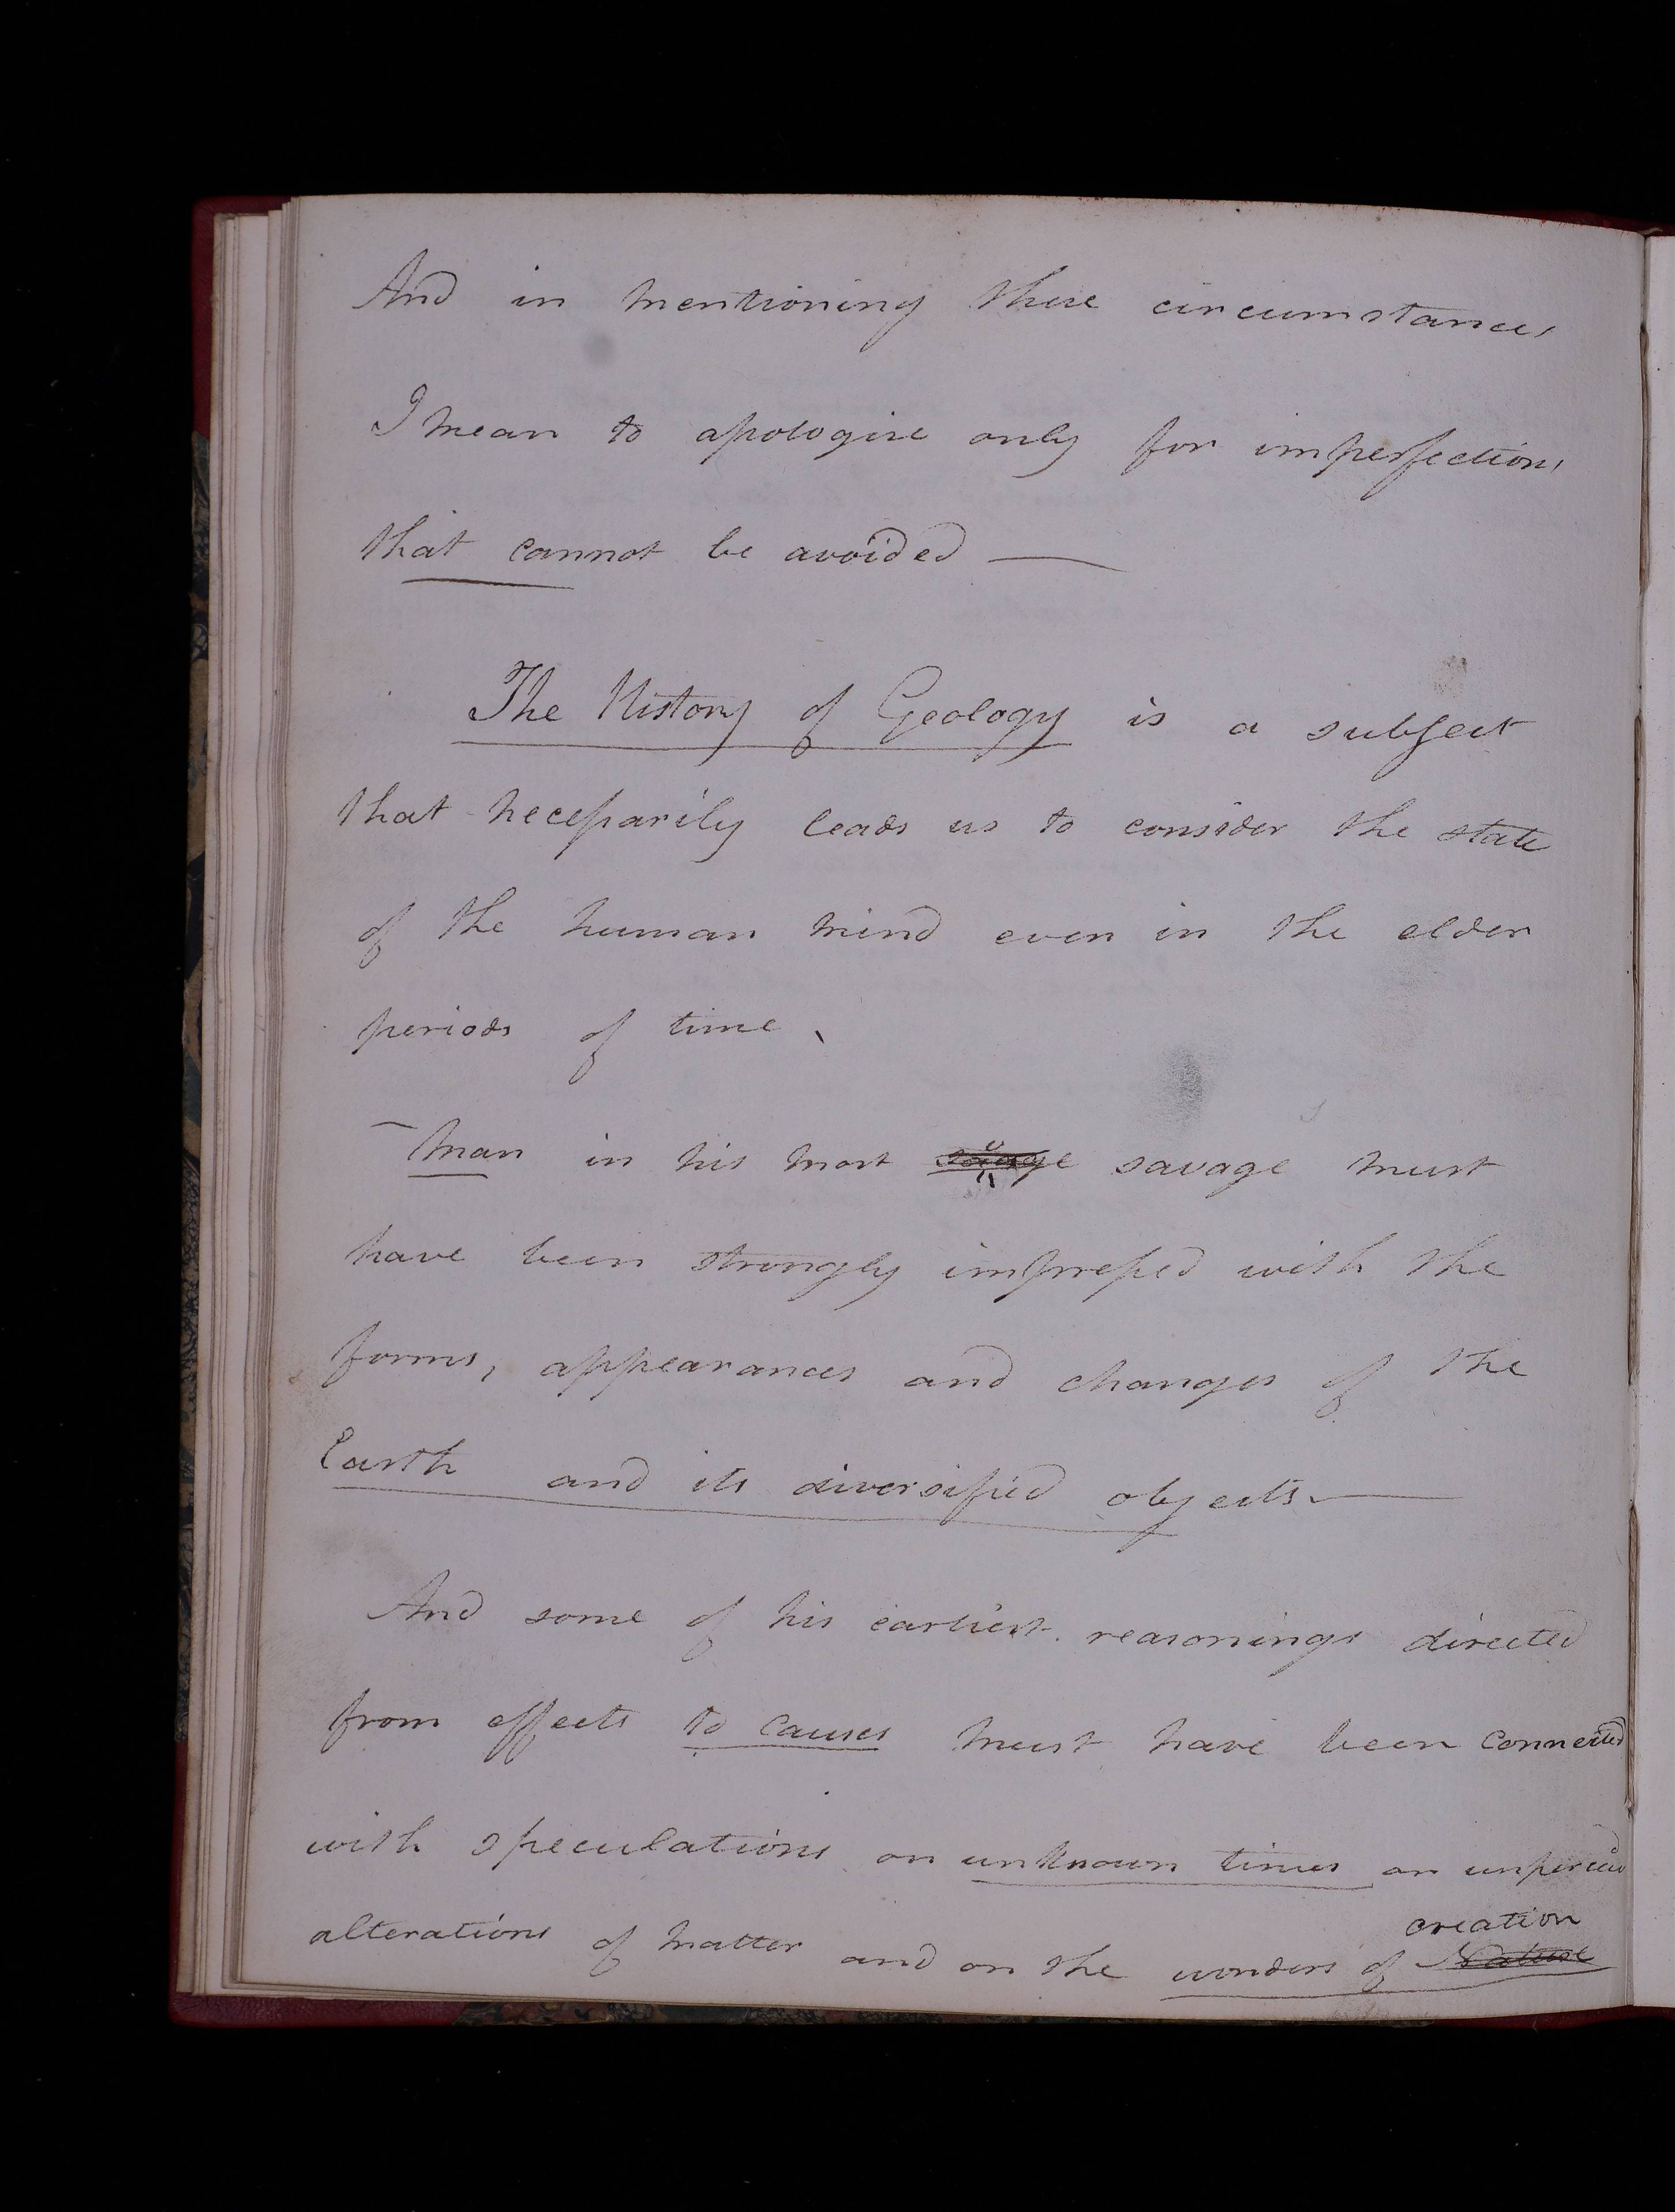 And in mentioning these circumstances
I mean to apologise only for imperfections
that cannot be avoided —
The History of Geology is a subject
that necessarily leads us to consider the state
of the human mind even in the elder
periods of time,
– Man in his most savage savage must
have been strongly impressed with the
forms, appearances and changes of the
Earth and its diversified objects. —
And some of his earliest reasonings directed
from effects to causes must have been connected
with speculations on unknown times on unperceived
creation
alterations of matter and on the wonders of Nature